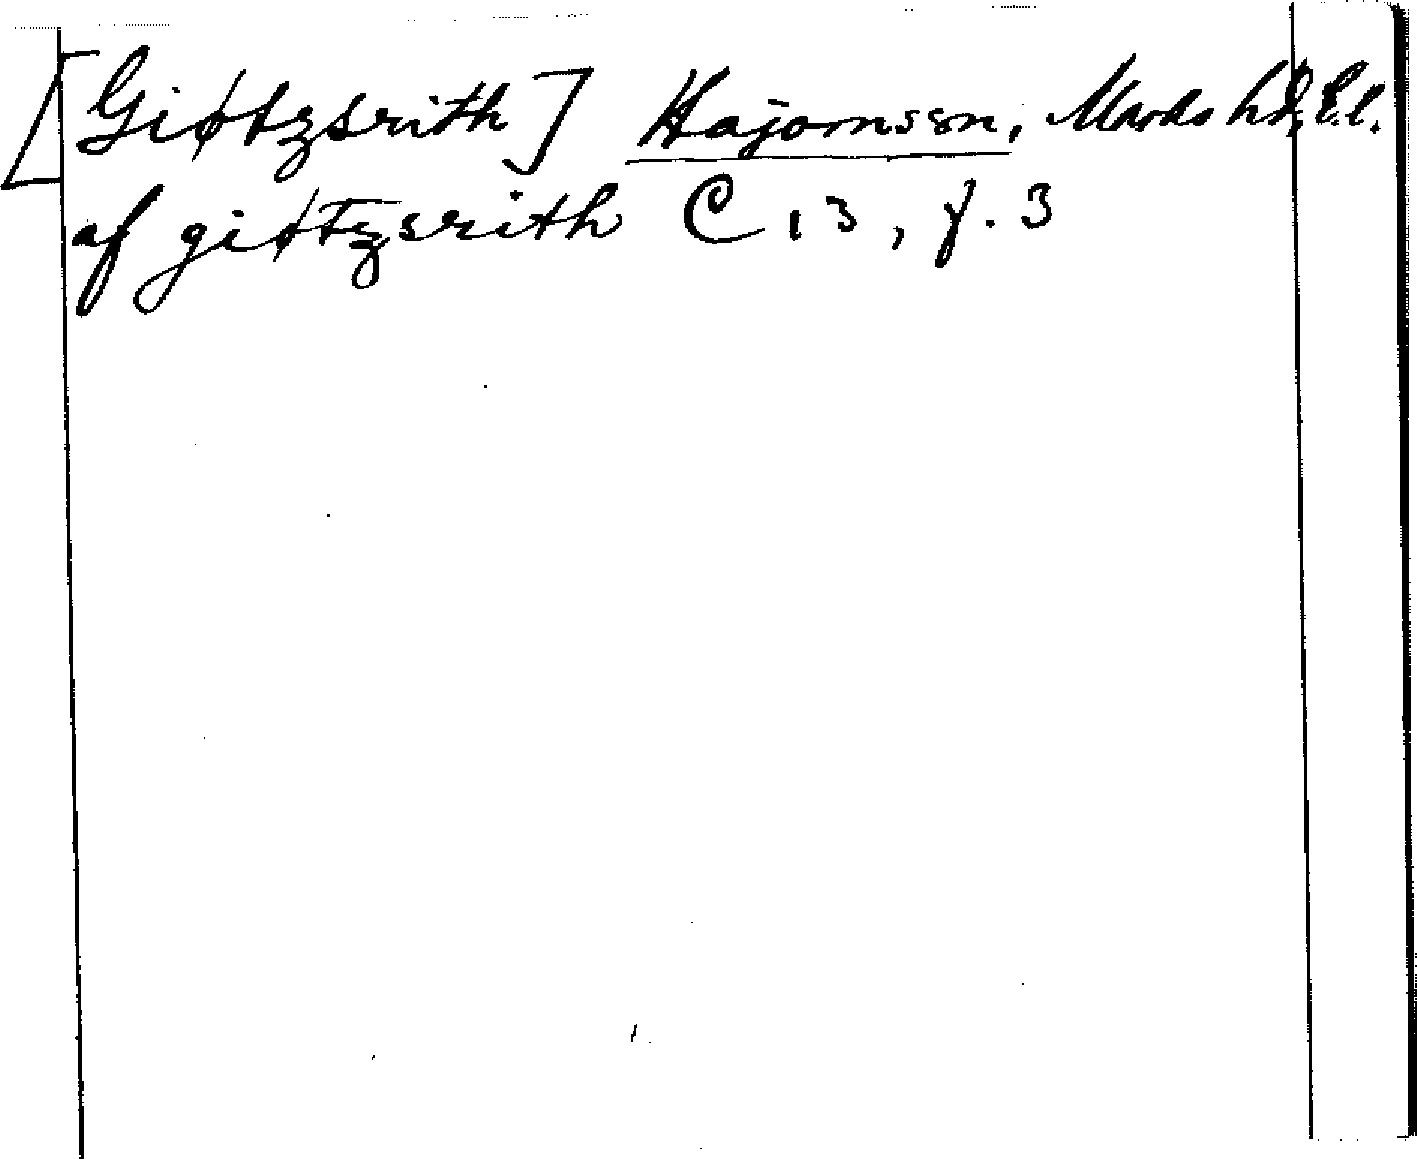 [Giøtzsrith] Hajornssn, Marks hd, E.l.
af giøtzsrith C 13, f. 3